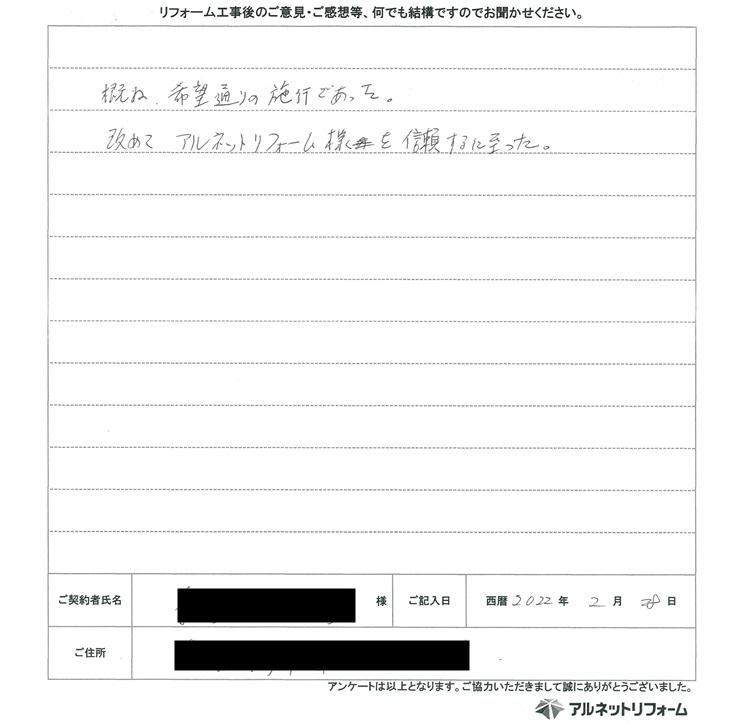 リフォーム工事後のご意見・ご感想等、何でも結構ですのでお聞かせください。
概ね、希望通りの施行であった。
改めて アルネットリフォーム様を信頼するに至った。
ご契約者氏名 様 ご記入日 西暦 2022 年 2 月 28 日
ご住所
アンケートは以上となります。ご協力いただきまして誠にありがとうございました。
アルネットリフォーム